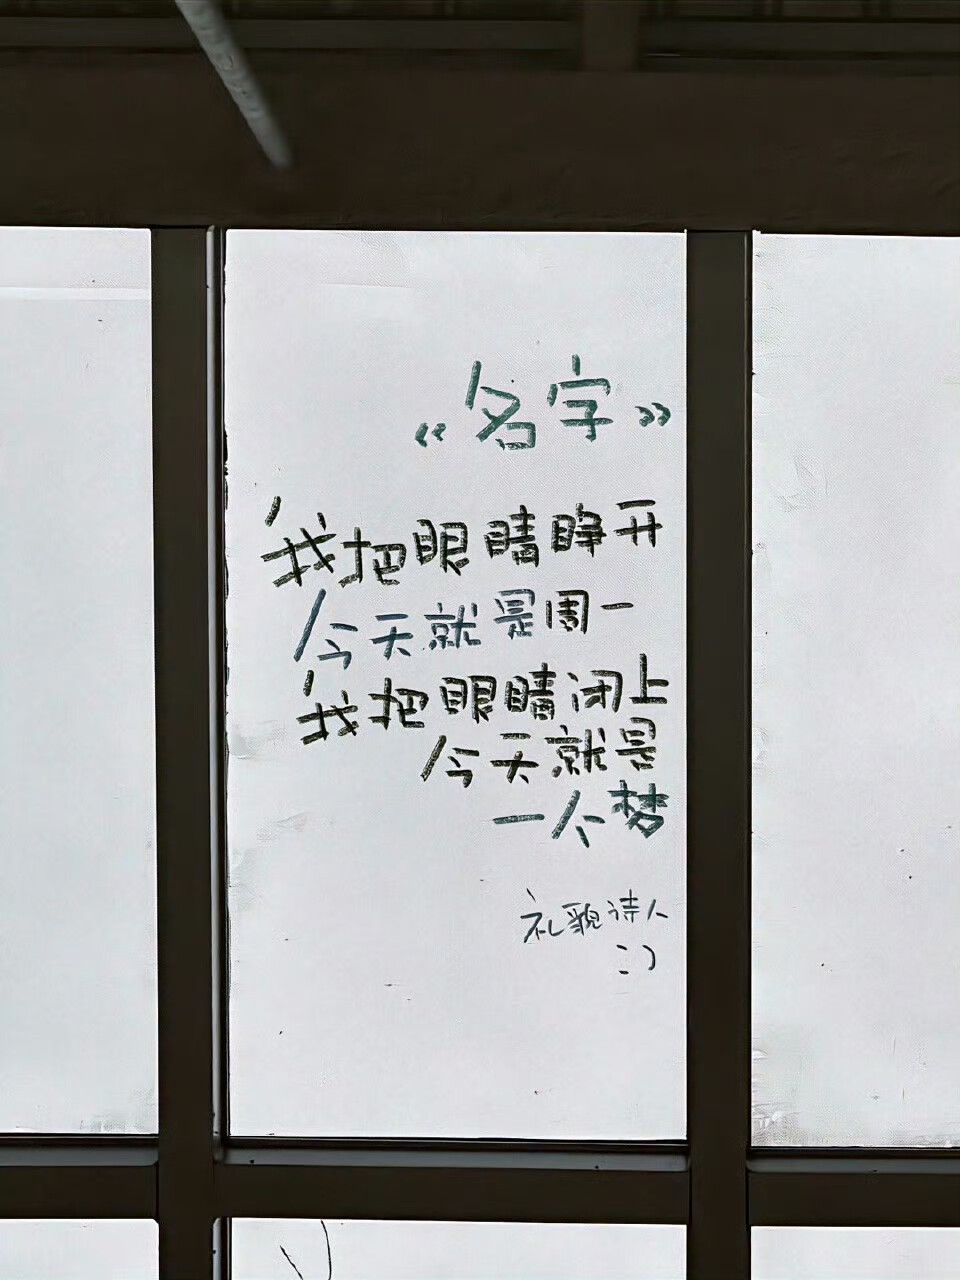 《名字》
我把眼睛睁开
今天就是周一
我把眼睛闭上
今天就是
一个梦
礼貌诗人
:)